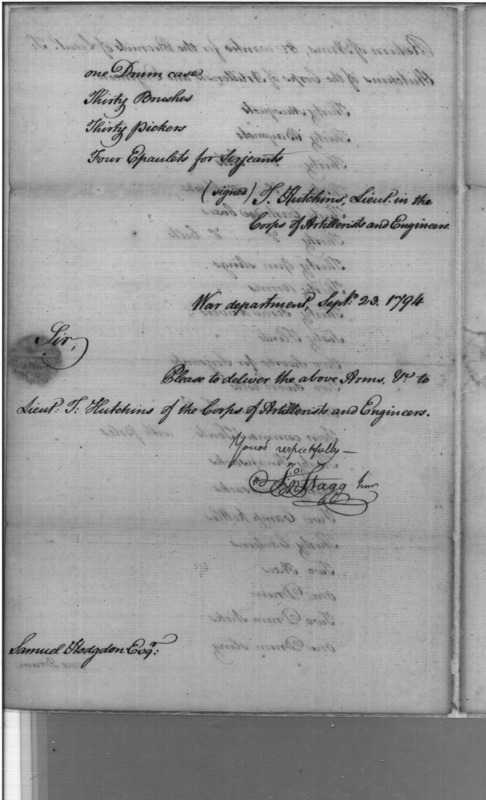 one Drum case
Thirty Brushes
Thirty Pickers
Four Epaulets for Serjeants
(signed) T. Hutchins, Lieut. in the
Corps of Artillerists and Engineers.
War department, Sept. 23. 1794
Sir,
Please to deliver the above Arms, &c to
Lieut: T: Hutchins of the Corps of Artillerists and Engineers.
Yours respectfully —
Jno Stagg Junr
Samuel Hodgdon Esqr: